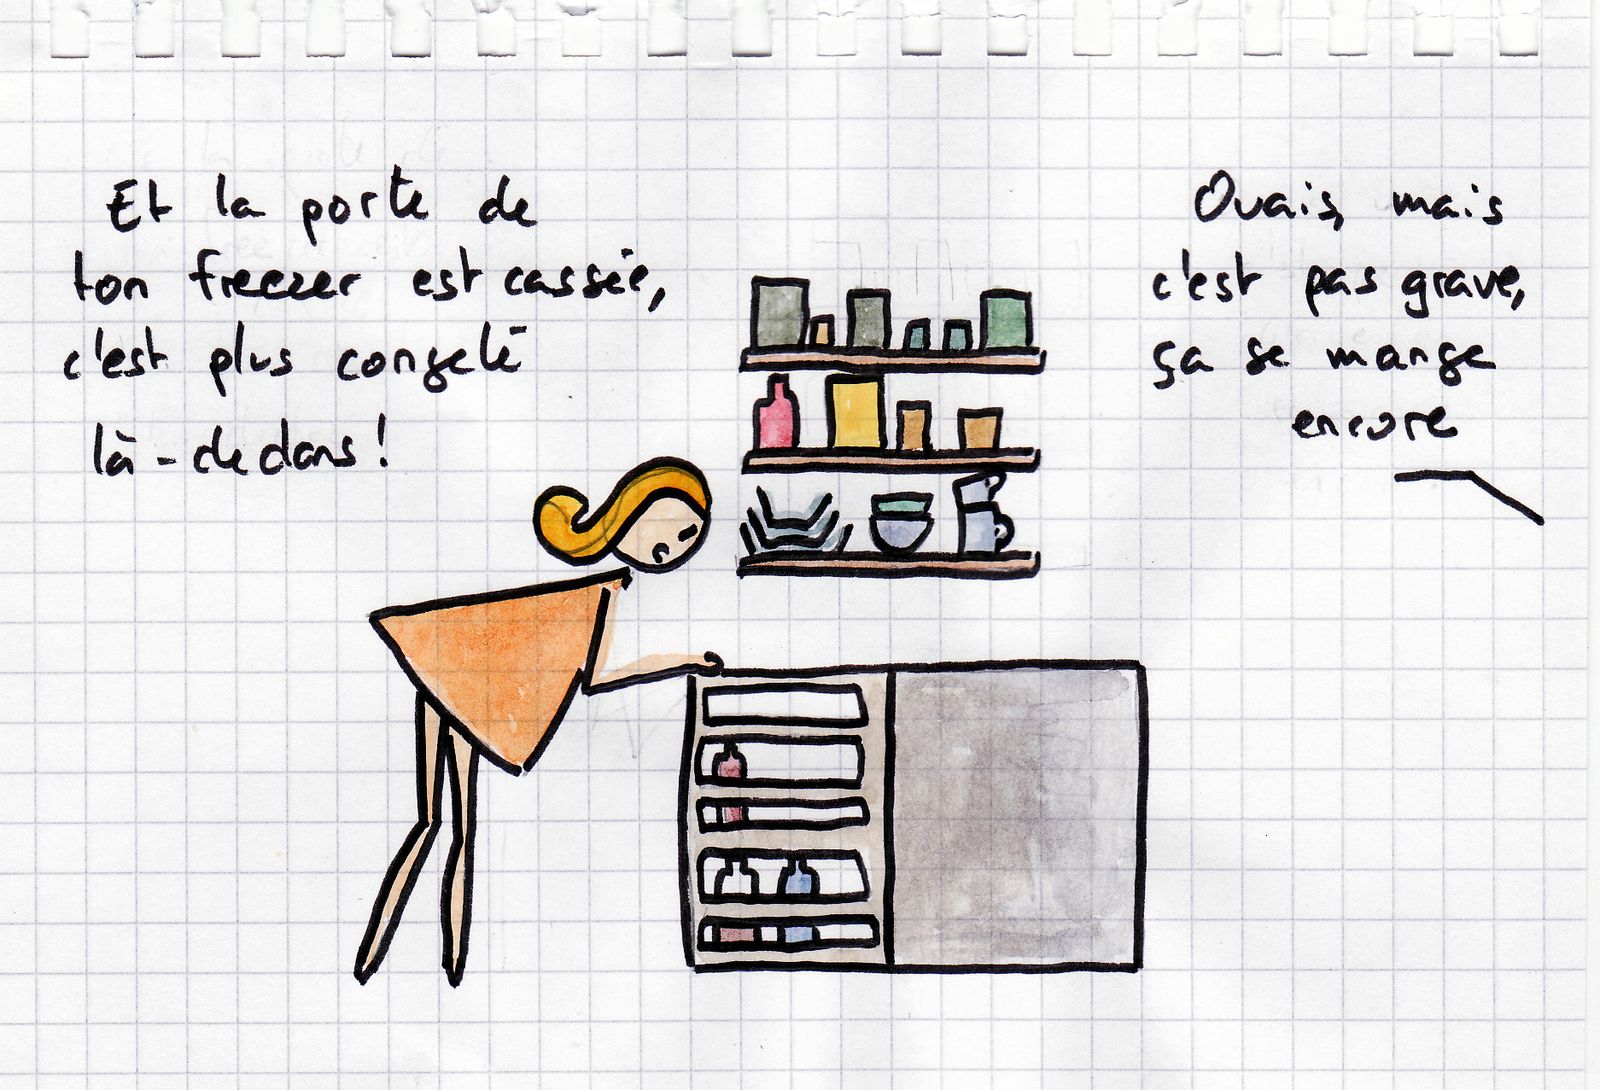 Et la porte de
ton freezer est cassée,
c'est plus congelé
là-dedans!
Ouais, mais
c'est pas grave,
ça se mange
encore